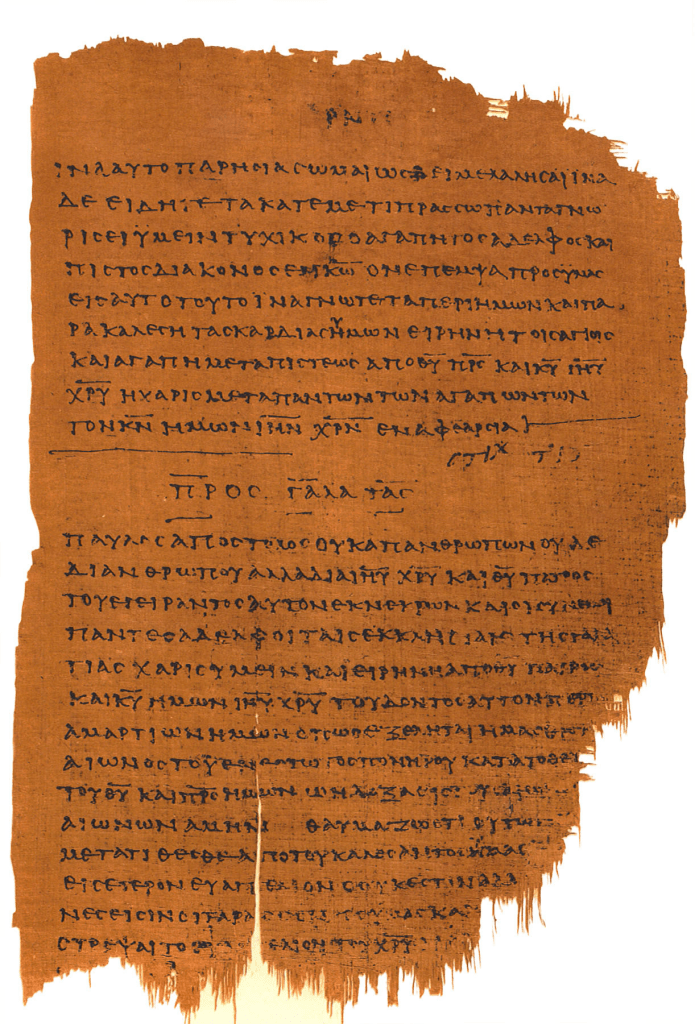 ΡΝ
ΙΝΑ ΑΥΤΟ ΠΑΡΗΣΙΑΣΩΜΑΙ ΩΣ ΔΕΙ ΜΕ ΛΑΛΗΣΑΙ ΪΝΑ
ΔΕ ΕΙΔΗΤΕ ΤΑ ΚΑΤ ΕΜΕ ΤΙ ΠΡΑΣΣΩ ΠΑΝΤΑ ΓΝΩ
ΡΙΣΕΙ ΫΜΕΙΝ ΤΥΧΙΚΟΣ Ο ΑΓΑΠΗΤΟΣ ΑΔΕΛΦΟΣ ΚΑΙ
ΠΙΣΤΟΣ ΔΙΑΚΟΝΟΣ ΕΝ Κ̅Ω̅ ΟΝ ΕΠΕΜΨΑ ΠΡΟΣ ΫΜΑΣ
ΕΙΣ ΑΥΤΟ ΤΟΥΤΟ ΪΝΑ ΓΝΩΤΕ ΤΑ ΠΕΡΙ ΗΜΩΝ ΚΑΙ ΠΑ
ΡΑΚΑΛΕΣΗ ΤΑΣ ΚΑΡΔΙΑΣ ΫΜΩΝ ΕΙΡΗΝΗ ΤΟΙΣ ΑΓΙΟΙΣ
ΚΑΙ ΑΓΑΠΗ ΜΕΤΑ ΠΙΣΤΕΩΣ ΑΠΟ Θ̅Υ̅ Π̅Ρ̅Σ̅ ΚΑΙ Κ̅Υ̅ Ι̅Η̅Υ̅
Χ̅Ρ̅Υ̅ Η ΧΑΡΙΣ ΜΕΤΑ ΠΑΝΤΩΝ ΤΩΝ ΑΓΑΠΩΝΤΩΝ
ΤΟΝ Κ̅Ν̅ ΗΜΩΝ Ι̅Η̅Ν̅ Χ̅Ρ̅Ν̅ ΕΝ ΑΦΘΑΡΣΙΑ
ΠΡΟΣ ΓΑΛΑΤΑΣ
ΠΑΥΛΟΣ ΑΠΟΣΤΟΛΟΣ ΟΥΚ ΑΠ ΑΝΘΡΩΠΩΝ ΟΥΔΕ
ΔΙ ΑΝΘΡΩΠΟΥ ΑΛΛΑ ΔΙΑ Ι̅Η̅Υ̅ Χ̅Ρ̅Υ̅ ΚΑΙ Θ̅Υ̅ ΠΑΤΡΟΣ
ΤΟΥ ΕΓΕΙΡΑΝΤΟΣ ΑΥΤΟΝ ΕΚ ΝΕΚΡΩΝ ΚΑΙ ΟΙ ΣΥΝ ΕΜΟΙ
ΠΑΝΤΕΣ ΑΔΕΛΦΟΙ ΤΑΙΣ ΕΚΚΛΗΣΙΑΙΣ ΤΗΣ ΓΑΛΑ
ΤΙΑΣ ΧΑΡΙΣ ΥΜΕΙΝ ΚΑΙ ΕΙΡΗΝΗ ΑΠΟ Θ̅Υ̅
ΚΑΙ Κ̅Υ̅ ΗΜΩΝ Ι̅Η̅Υ̅ Χ̅Ρ̅Υ̅ ΤΟΥ ΔΟΝΤΟΣ ΑΥΤΟΝ ΠΕΡΙ
ΑΜΑΡΤΙΩΝ ΗΜΩΝ ΟΠΩΣ ΕΞΕΛΗΤΑΙ ΗΜΑΣ
ΑΙΩΝΟΣ ΤΟΥ ΕΝΕΣΤΩΤΟΣ ΠΟΝΗΡΟΥ ΚΑΤΑ ΤΟ
ΤΟΥ Θ̅Υ̅ ΚΑΙ Π̅Ρ̅Σ̅ ΗΜΩΝ Ω Η ΔΟΞΑ ΕΙΣ
ΑΙΩΝΩΝ ΑΜΗΝ ΘΑΥΜΑΖΩ ΟΤΙ ΟΥΤΩΣ
ΜΕΤΑΤΙΘΕΣΘΕ ΑΠΟ ΤΟΥ ΚΑΛΕΣΑΝΤΟΣ ΥΜΑΣ
ΕΙΣ ΕΤΕΡΟΝ ΕΥΑΓΓΕΛΙΟΝ Ο ΟΥΚ ΕΣΤΙΝ ΑΛΛΟ
ΝΕΣ ΕΙΣΙΝ ΟΙ ΤΑΡΑΣΣΟΝΤΕΣ ΥΜΑΣ ΚΑΙ
ΣΤΡΕΨΑΙ ΤΟ ΕΥΑΓΓΕΛΙΟΝ ΤΟΥ Χ̅Ρ̅Υ̅